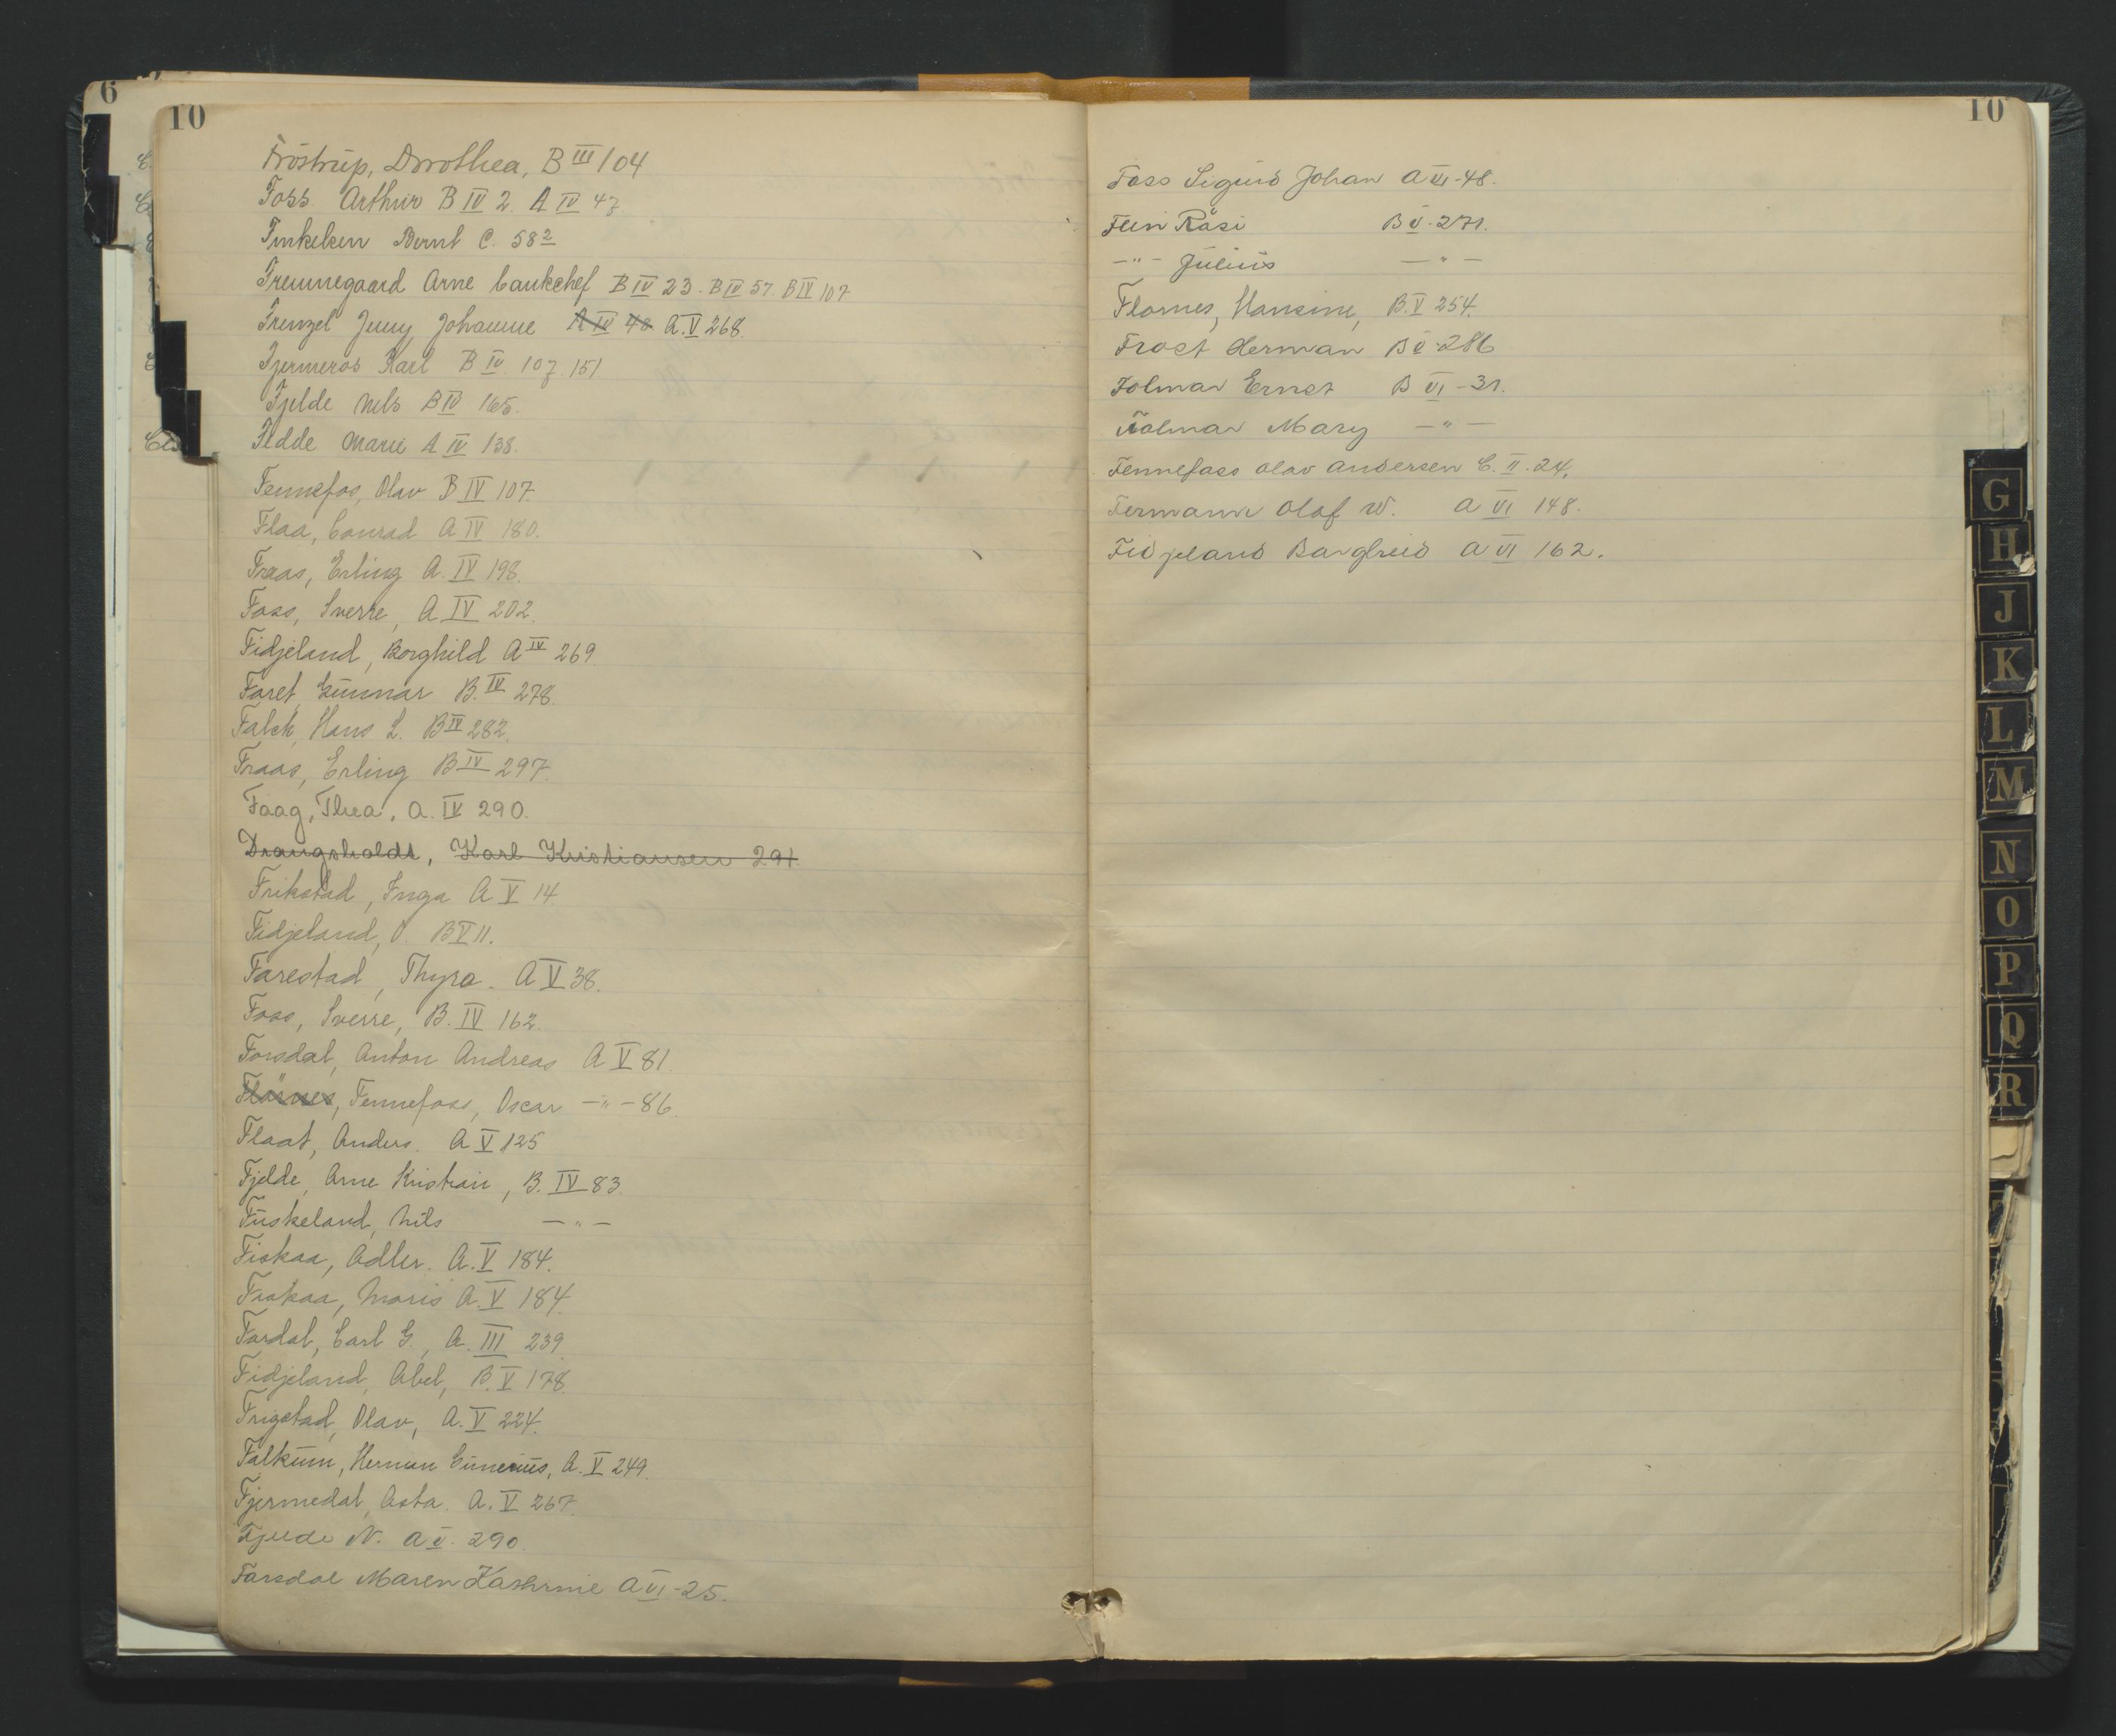 6
10
Fröstrup, Dorothea, B III 104
Foss Arthur B IV 2. A IV 47
Finkelsen Bernt C. 58 2
Fremnegaard Arne bankchef B IV 23. B IV 57. B IV 107
Frenzel Jenny Johanne A IV 40 A. V 268.
Fjermeros Karl B IV. 107. 151
Fjelde Nels B IV 165.
Fedde Marie A IV 138.
Fennefos, Olav B IV 107.
Flaa, Conrad A IV 180.
Fraas, Erling A. IV 198.
Foss, Sverre, A IV 202.
Fidjeland, Borghild A IV 269
Faret, Gunnar B. IV 278.
Falck, Hans L. B IV 282.
Fraas, Erling B IV 297.
Faag, Thea, A. IV 290.
Drangsholdt, Karl Kristiansen 291
Frikstad, Inga A V 14.
Fidjeland, O. B V 11.
Farestad, Thyra. A V 38.
Foss, Sverre, B. IV 162.
Forsdal, Anton Andreas A V 81.
Flörnes, Fennefoss, Oscar —"— 86.
Flaat, Anders. A V 125
Fjelde, Arne Kristian, B. IV 83.
Fuskeland, Nils —"—
Fiskaa, Adler. A. V 184.
Fiskaa, Maris A. V 184.
Fardal, Carl G., A. III 239.
Fidjeland, Abel, B. V 178.
Frigstad, Olav, A. V 224.
Falkum, Herman Gunerius, A. V 249.
Fjermedal, Asta. A. V 267.
Fjelde N. A V. 290.
Farsdal Maren Kathrine A VI-25.
10
Foss Sigurd Johan A VI-48.
Fein Råsi B V. 271.
—"— Julius —"—
Flornes, Hansine, B. V 254.
Frost Herman B V-286
Folmar Ernst B VI-31.
Folmar Mary —"—
Fennefoss Olav Andersen C. II. 24.
Fermann Olaf W. A VI 148.
Fidjeland Bargheid A VI 162.
G
H
J
K
L
M
N
O
P
Q
R